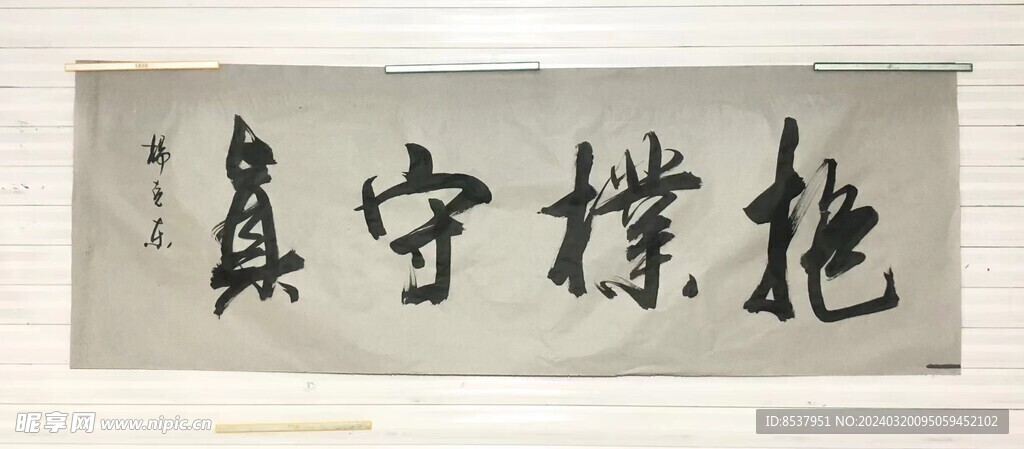 抱樸守真
昵享网 www.nipic.cn
ID:8537951 NO:20240320095059452102